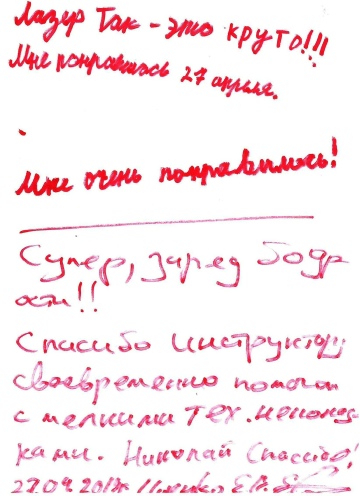 Лазер Так - это круто!!!
Мне понравилось 27 апреля.
Мне очень понравилось!
Супер, заряд бодр
ости!!
Спасибо инструктору
своевременно помогал
с мелкими тех. неполад
ками. Николай Спасибо!
27.04.2017г